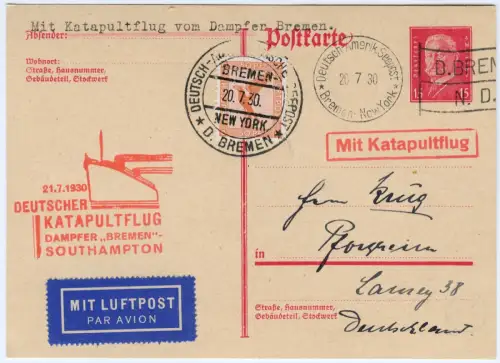 Mit Katapultflug vom Dampfen Bremen.
Absender:
Postkarte
Wohnort:
Straße, Hausnummer,
Gebäudeteil, Stockwerk
BREMEN-
20.7.30.
NEW YORK
DEUTSCH-AMERIKANISCHE SEEPOST
* D. BREMEN *
Deutsch-Amerik. Seepost
20 7 30
* Bremen-New York *
D. BREM
N. D.
15 15
Mit Katapultflug
21.7.1930
DEUTSCHER
KATAPULTFLUG
DAMPFER „BREMEN"-
SOUTHAMPTON
MIT LUFTPOST
PAR AVION
Herrn Krug
Pforzheim
in
38
Straße, Hausnummer,
Gebäudeteil, Stockwerk
Deutschland.